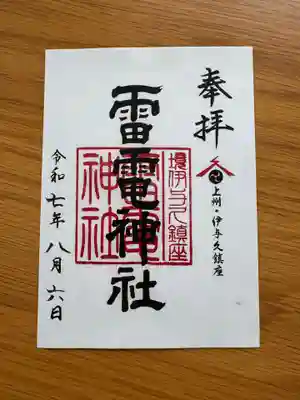 奉拝
上州・伊与久鎮座
雷電神社
境伊与久鎮座
雷電神社
令和七年八月六日